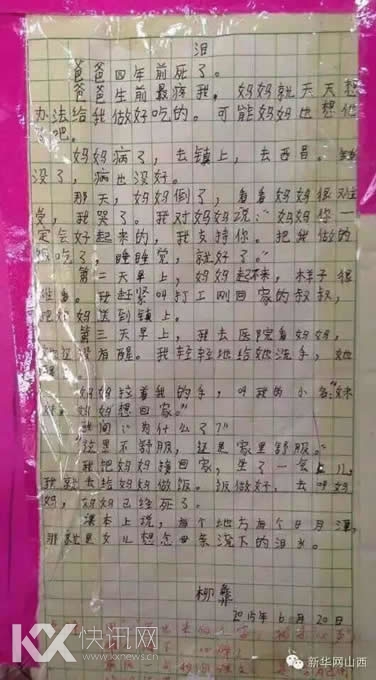 泪
爸爸四年前死了。
爸爸生前最疼我，妈妈就天天想
办法给我做好吃的。可能妈妈也想他
了吧。
妈妈病了，去镇上，去西昌。钱
没了，病也没好。
那天，妈妈倒了，看看妈妈很难
受，我哭了。我对妈妈说：“妈妈你一
定会好起来的，我支持你。把我做的
饭吃了，睡睡觉，就好了。”
第二天早上，妈妈起不来，样子很
难看。我赶紧叫打工刚回家的叔叔，
把妈妈送到镇上。
第三天早上，我去医院看妈妈，
她还没有醒。我轻轻地给她洗手，她
醒了。
妈妈拉着我的手，叫我的小名：“妹
妹，妈妈想回家。”
我问：“为什么了？”
“这里不舒服，还是家里舒服。”
我把妈妈接回家，坐了一会儿，
我就去给妈妈做饭。饭做好，去叫妈
妈，妈妈已经死了。
课本上说，有个地方有个日月潭，
那就是女儿想念母亲流下的泪水。
柳彝
2015年6月20日
KX 快讯网
www.kxnews.cn
新华网山西